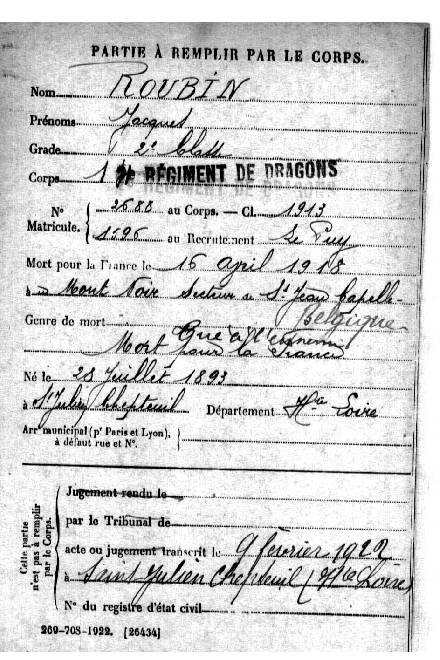 PARTIE À REMPLIR PAR LE CORPS.
Nom ROUBIN
Prénoms Jacques
Grade 2e Classe
Corps 1 RÉGIMENT DE DRAGONS
N° Matricule. 2688 au Corps. — Cl. 1913
1596 au Recrutement Le Puy
Mort pour la France le 16 April 1918
à Mont Noir Secteur de St Jean Capelle
Belgique
Genre de mort Tué à l'ennemi
Mort pour la France
Né le 28 Juillet 1893
à St Julien Chapteuil Département Hte Loire
Arrt municipal (pr Paris et Lyon),
à défaut rue et N°.
Cette partie n'est pas à remplir par le Corps.
Jugement rendu le
par le Tribunal de
acte ou jugement transcrit le 9 février 1922
à Saint Julien Chapteuil (Hte Loire)
N° du registre d'état civil
269-708-1922. [26434]